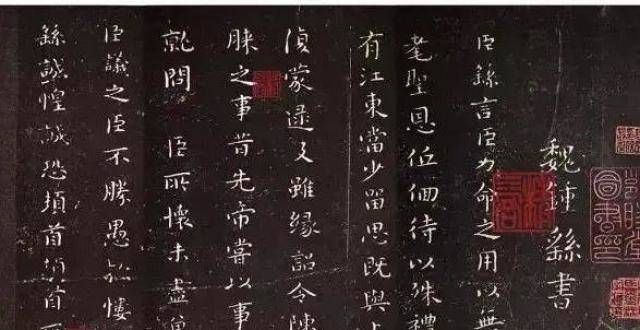 魏鍾繇書
臣繇言臣力命之用以無
耄聖恩低佪待以殊禮
有江東當少留思既與上
復蒙逮及雖緣詔令陳
之事昔先帝嘗以事
就問 臣所懷未盡
臣議之臣不勝愚款慺
繇誠惶誠恐頓首頓首